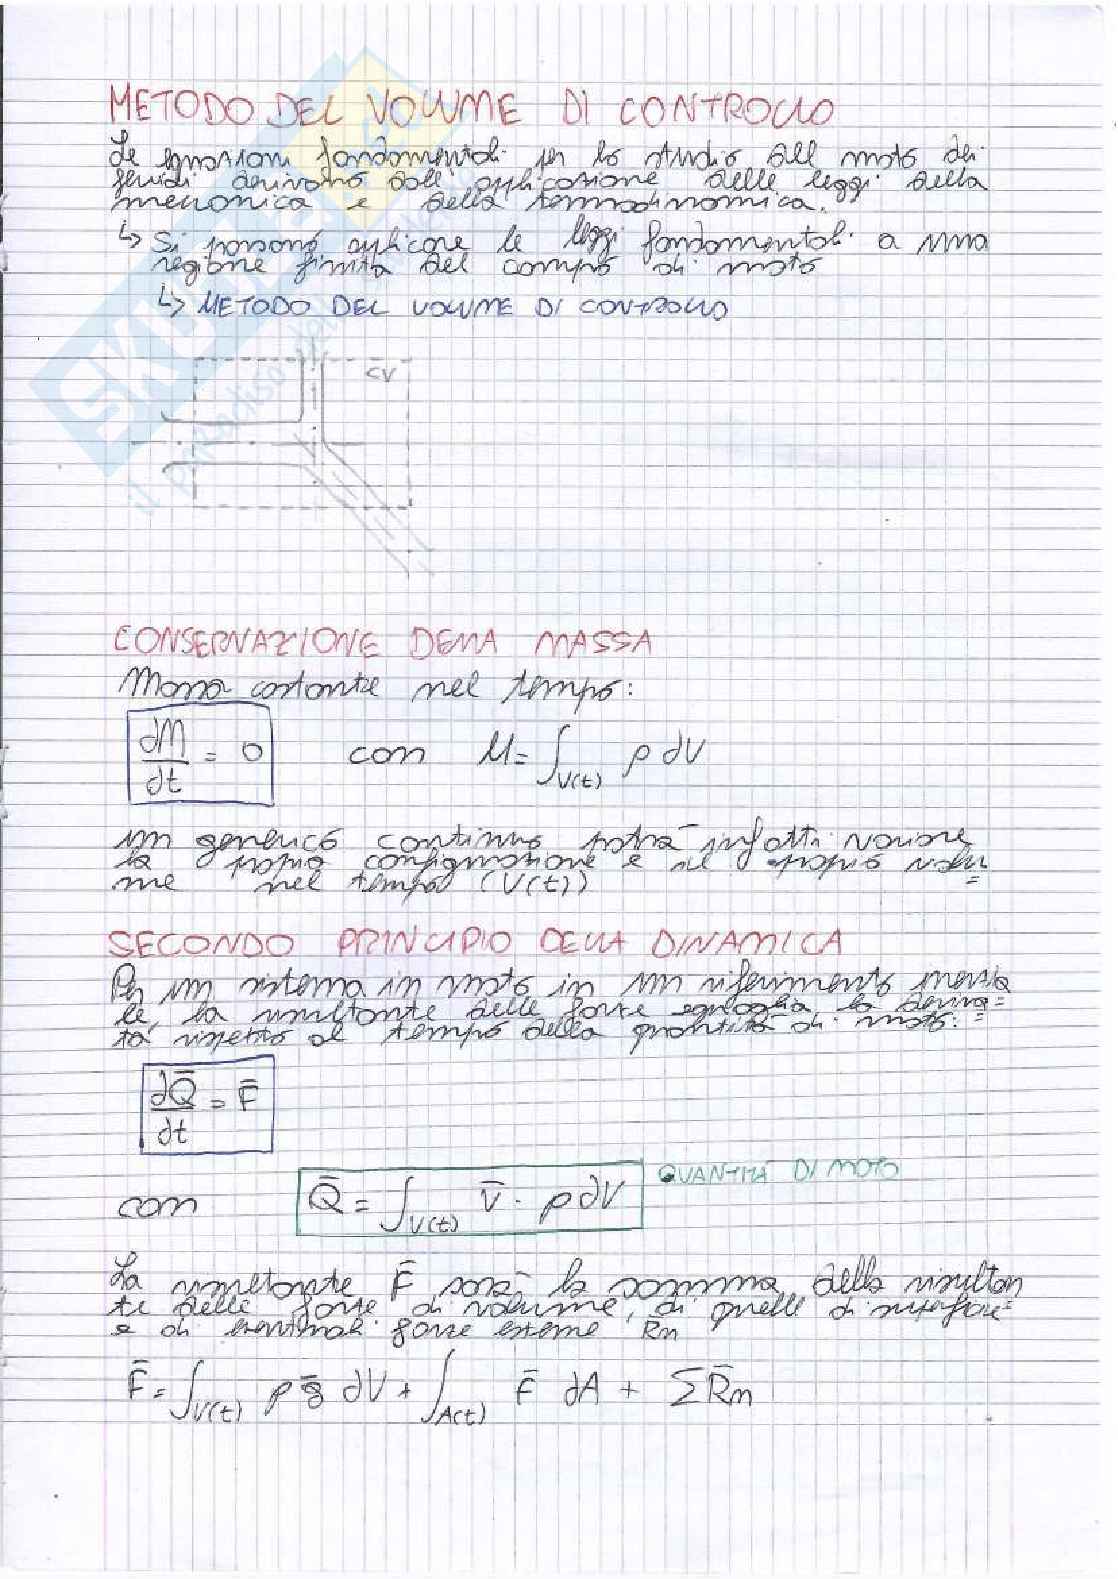 METODO DEL VOLUME DI CONTROLLO
Le equazioni fondamentali per lo studio del moto dei
fluidi derivano dall'applicazione delle leggi della
meccanica e della termodinamica.
↳ Si possono applicare le leggi fondamentali a una
regione finita del campo di moto
↳ METODO DEL VOLUME DI CONTROLLO
CV
SKUOLA
il paradiso dello
CONSERVAZIONE DELLA MASSA
Massa costante nel tempo:
dM/dt = 0 con M = ∫V(t) ρ dV
un generico continuo potrà infatti variare
la propria configurazione e il proprio volu=
me nel tempo (V(t))
SECONDO PRINCIPIO DELLA DINAMICA
Per un sistema in moto in un riferimento inerzia
le, la risultante delle forze eguaglia la deriva=
ta rispetto al tempo della quantità di moto:
dQ̄/dt = F̄
QUANTITÀ DI MOTO
con Q̄ = ∫V(t) v̄ · ρ dV
La risultante F̄ sarà la somma della risultan
te delle forze di volume, di quelle di superficie
e di eventuali forze esterne Rn
F̄ = ∫V(t) ρ ḡ dV + ∫A(t) F̄ dA + ΣR̄n